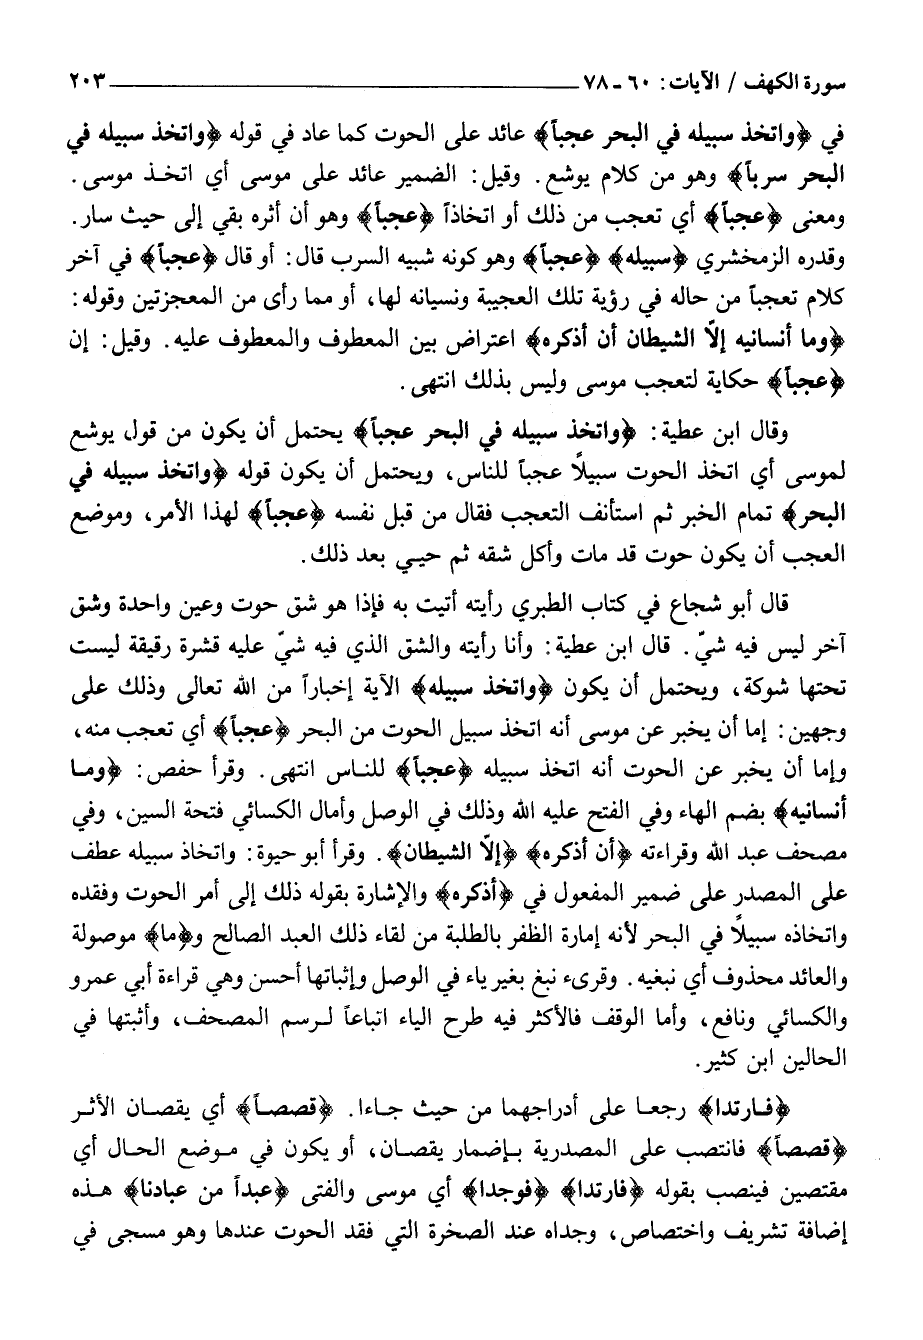 سورة الكهف / الآيات : ٦٠ - ٧٨ ــــــ ٢٠٣
في ﴿واتخذ سبيله في البحر عجباً﴾ عائد على الحوت كما عاد في قوله ﴿واتخذ سبيله في
البحر سرباً﴾ وهو من كلام يوشع. وقيل: الضمير عائد على موسى أي اتخذ موسى.
ومعنى ﴿عجباً﴾ أي تعجب من ذلك أو اتخاذاً ﴿عجباً﴾ وهو أن أثره بقي إلى حيث سار.
وقدره الزمخشري ﴿سبيله﴾ ﴿عجباً﴾ وهو كونه شبيه السرب قال: أو قال ﴿عجباً﴾ في آخر
كلام تعجباً من حاله في رؤية تلك العجيبة ونسيانه لها، أو مما رأى من المعجزتين وقوله:
﴿وما أنسانيه إلاّ الشيطان أن أذكره﴾ اعتراض بين المعطوف والمعطوف عليه. وقيل: إن
﴿عجباً﴾ حكاية لتعجب موسى وليس بذلك انتهى.
وقال ابن عطية: ﴿واتخذ سبيله في البحر عجباً﴾ يحتمل أن يكون من قول يوشع
لموسى أي اتخذ الحوت سبيلاً عجباً للناس، ويحتمل أن يكون قوله ﴿واتخذ سبيله في
البحر﴾ تمام الخبر ثم استأنف التعجب فقال من قبل نفسه ﴿عجباً﴾ لهذا الأمر، وموضع
العجب أن يكون حوت قد مات وأكل شقه ثم حيي بعد ذلك.
قال أبو شجاع في كتاب الطبري رأيته أتيت به فإذا هو شق حوت وعين واحدة وشق
آخر ليس فيه شيّ. قال ابن عطية: وأنا رأيته والشق الذي فيه شيّ عليه قشرة رقيقة ليست
تحتها شوكة، ويحتمل أن يكون ﴿واتخذ سبيله﴾ الآية إخباراً من الله تعالى وذلك على
وجهين: إما أن يخبر عن موسى أنه اتخذ سبيل الحوت من البحر ﴿عجباً﴾ أي تعجب منه،
وإما أن يخبر عن الحوت أنه اتخذ سبيله ﴿عجباً﴾ للناس انتهى. وقرأ حفص: ﴿وما
أنسانيه﴾ بضم الهاء وفي الفتح عليه الله وذلك في الوصل وأمال الكسائي فتحة السين، وفي
مصحف عبد الله وقراءته ﴿أن أذكره﴾ ﴿إلاّ الشيطان﴾. وقرأ أبو حيوة: واتخاذ سبيله عطف
على المصدر على ضمير المفعول في ﴿أذكره﴾ والإشارة بقوله ذلك إلى أمر الحوت وفقده
واتخاذه سبيلاً في البحر لأنه إمارة الظفر بالطلبة من لقاء ذلك العبد الصالح و﴿ما﴾ موصولة
والعائد محذوف أي نبغيه. وقرىء نبغ بغير ياء في الوصل وإثباتها أحسن وهي قراءة أبي عمرو
والكسائي ونافع، وأما الوقف فالأكثر فيه طرح الياء اتباعاً لرسم المصحف، وأثبتها في
الحالين ابن كثير.
﴿فارتدا﴾ رجعا على أدراجهما من حيث جاءا. ﴿قصصاً﴾ أي يقصان الأثر
﴿قصصاً﴾ فانتصب على المصدرية بإضمار يقصان، أو يكون في موضع الحال أي
مقتصين فينصب بقوله ﴿فارتدا﴾ ﴿فوجدا﴾ أي موسى والفتى ﴿عبداً من عبادنا﴾ هذه
إضافة تشريف واختصاص، وجداه عند الصخرة التي فقد الحوت عندها وهو مسجى في